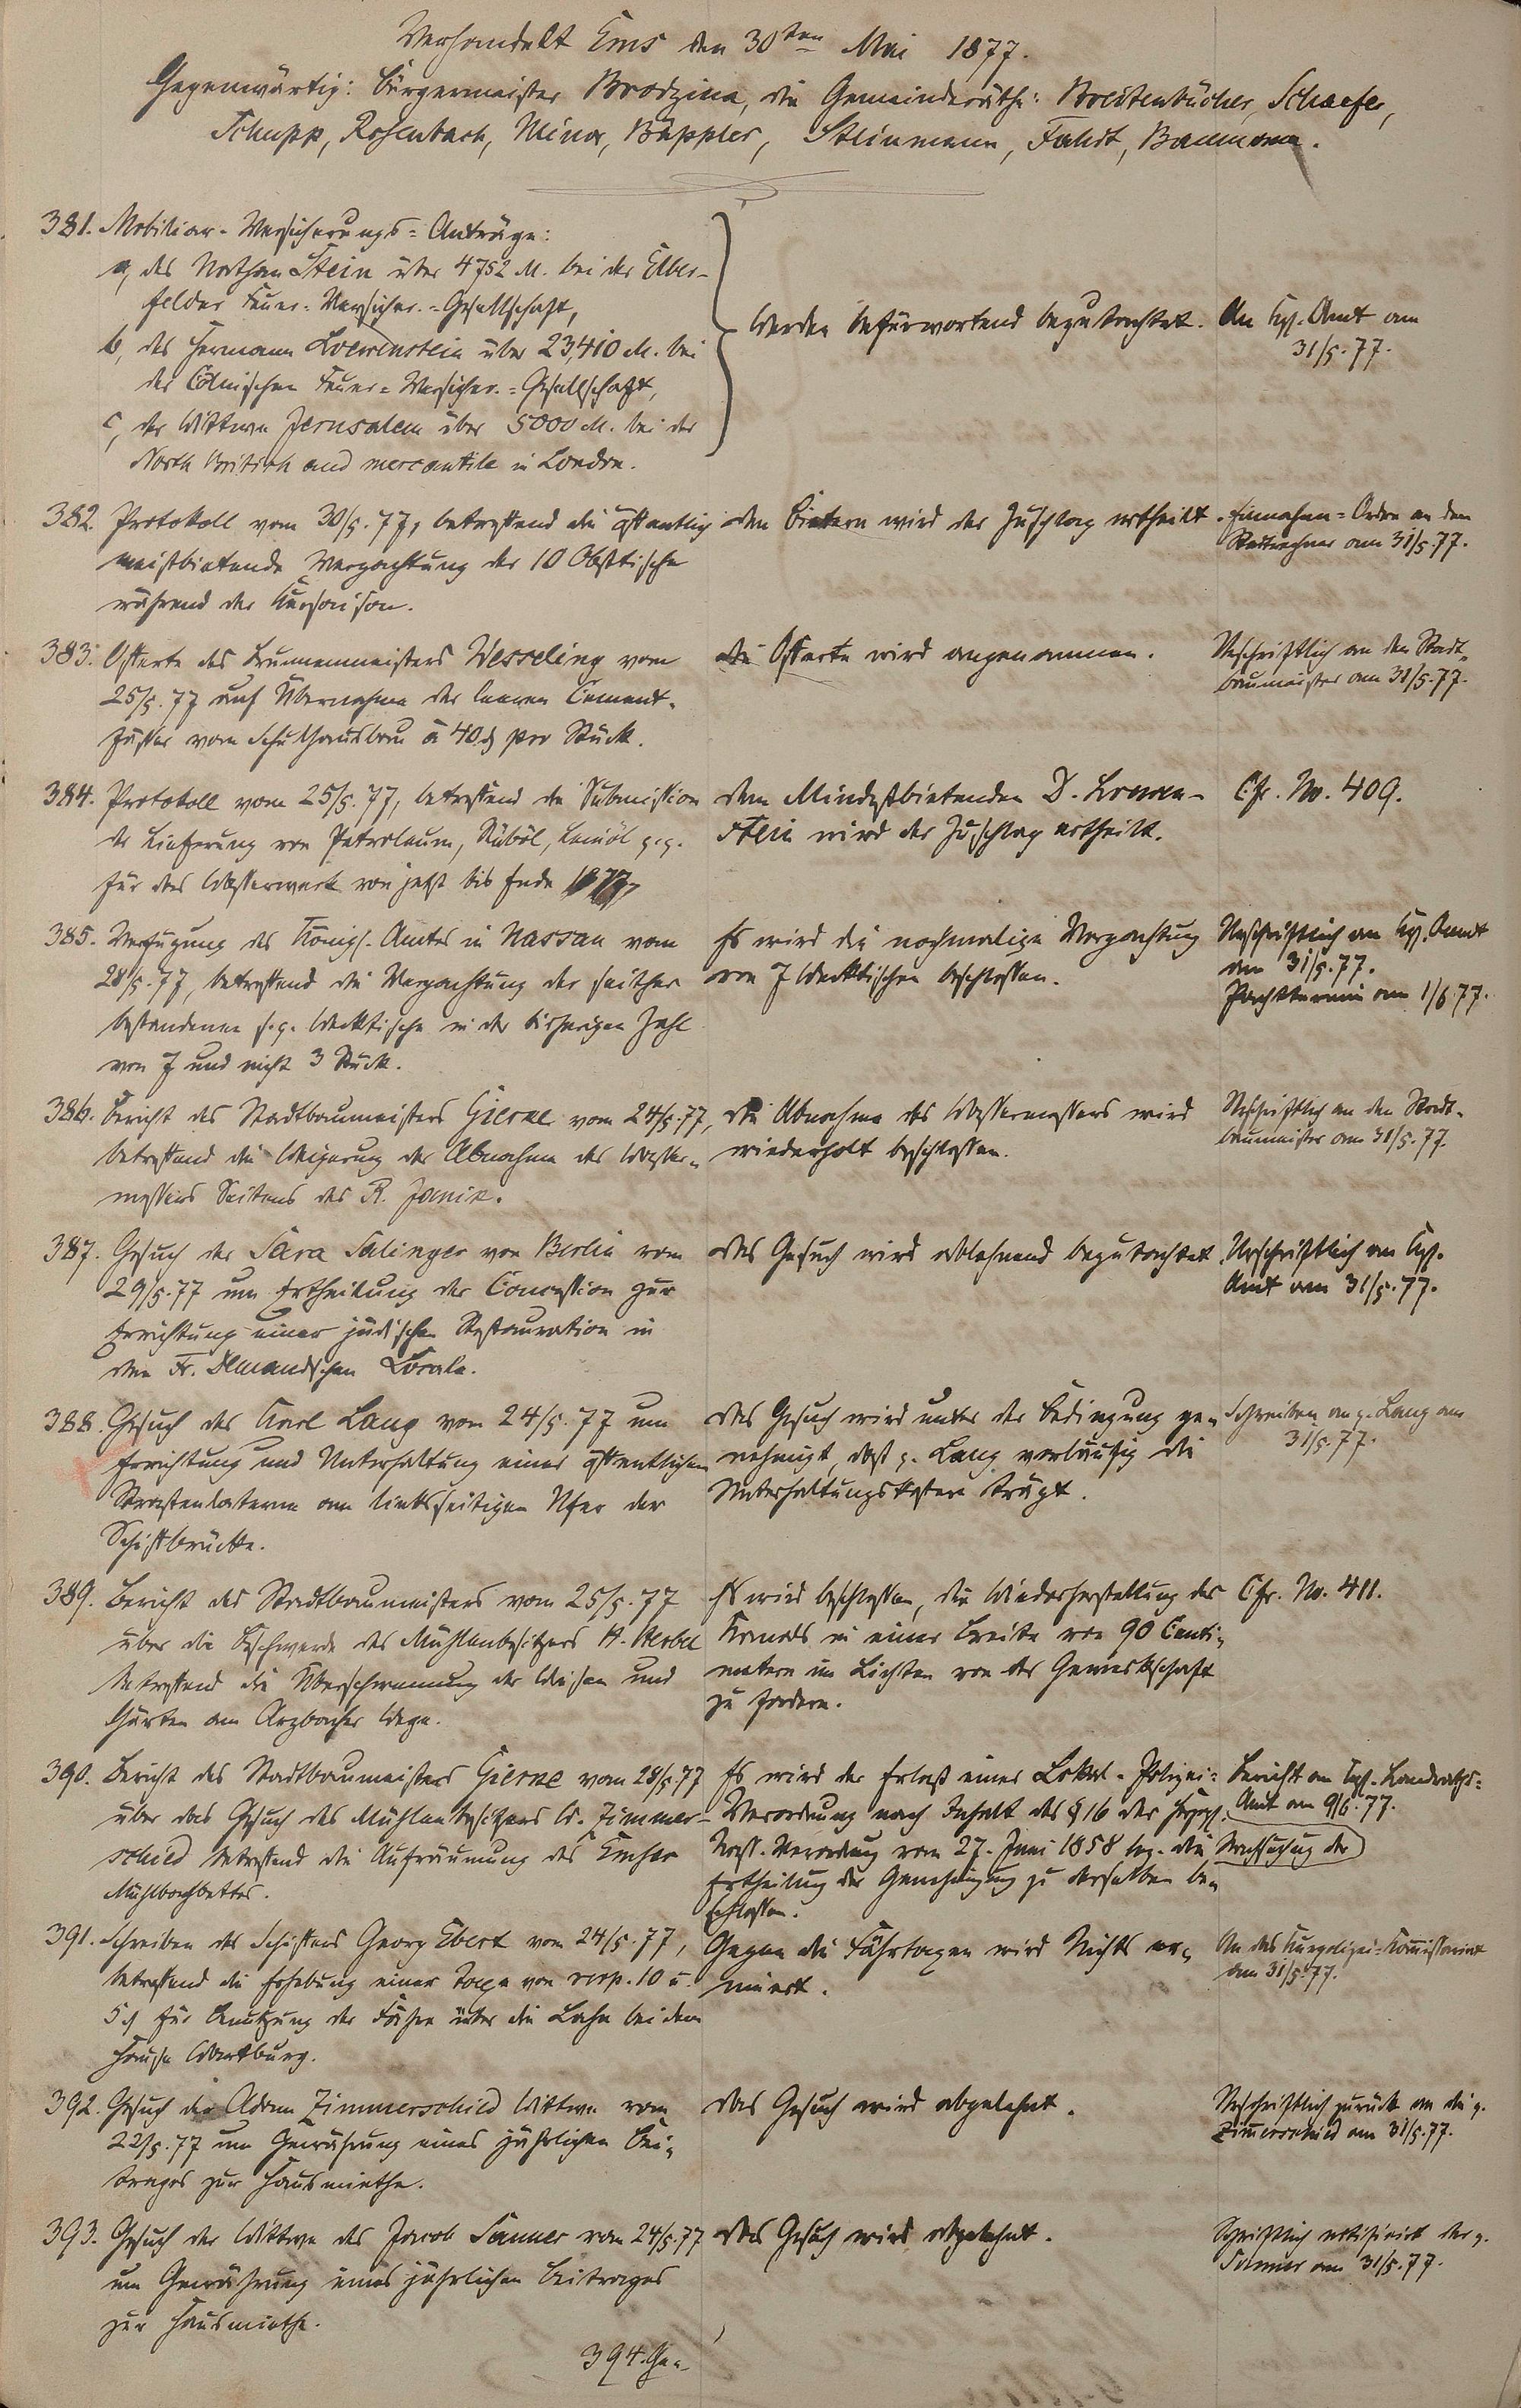 Verhandelt Ems den 30ten Mai 1877.
Gegenwärtig: Bürgermeister Brodzina, die Gemeinderäthe: Breidenbücher, Schaefer,
Schupp, Rosenbach, Minor, Bäppler, Steinmann, Fahdt, Baumann.
381. Mobiliar-Versicherungs-Anträge:
a, des Nathan Stein über 4752 M. bei der Elber-
felder Feuer-Versicher.-Gesellschaft,
b, des Hermann Loewenstein über 23,410 M. bei
der Cölnischen Feuer-Versicher.-Gesellschaft,
c, der Wittwe Jerusalem über 5000 M. bei der
North British and mercantile in London.
Werden befürwortend begutachtet.
An Kgl. Amt am
31/5.77.
382. Protokoll vom 30/5.77, betreffend die öffentlich
meistbietende Verpachtung der 10 Obsttische
während der Kursaison.
Den Bietern wird der Zuschlag ertheilt.
Einnahme-Ordre an den
Stadtrechner am 31/5.77.
383. Offerte des Brunnenmeisters Wesseling vom
25/5.77 auf Übernahme der leeren Cement-
fässer vom Schulhausbau à 40 ₰ pro Stück.
Die Offerte wird angenommen.
Urschriftlich an den Stadt-
baumeister am 31/5.77.
384. Protokoll vom 25/5.77, betreffend die Submission
der Lieferung von Petroleum, Rüböl, Leinöl p.p.
für das Wasserwerk von jetzt bis Ende 1877,
Dem Mindestbietenden D. Loewen-
stein wird der Zuschlag ertheilt.
Cfr. No. 409.
385. Verfügung des Königl. Amtes in Nassau vom
28/5.77, betreffend die Verpachtung der seither
bestandenen s.g. Wecktische in der bisherigen Zahl
von 7 und nicht 3 Stück.
Es wird die nochmalige Verpachtung
von 7 Wecktischen beschlossen.
Urschriftlich an Kgl. Amt
am 31/5.77.
Pachttermin am 1/6.77.
386. Bericht des Stadtbaumeisters Gierne vom 24/5.77,
betreffend die Weigerung der Abnahme des Wasser-
messers Seitens des R. Janin.
Die Abnahme des Wassermessers wird
wiederholt beschlossen.
Urschriftlich an den Stadt-
baumeister am 31/5.77.
387. Gesuch der Sara Salinger von Berlin vom
29/5.77 um Ertheilung der Concession zur
Errichtung einer jüdischen Restauration in
dem Fr. Lokale.
Das Gesuch wird ablehnend begutachtet.
Urschriftlich an Kgl.
Amt am 31/5.77.
388. Gesuch des Karl Lang vom 24/5.77 um
Errichtung und Unterhaltung einer öffentlichen
Straßenlaterne am linksseitigen Ufer der
Schiffbrücke.
Das Gesuch wird unter der Bedingung ge-
nehmigt, daß p. Lang vorläufig die
Unterhaltungskosten trägt.
Schreiben an p. Lang am
31/5.77.
389. Bericht des Stadtbaumeisters vom 25/5.77
über die Beschwerde des Mühlenbesitzers H. Herbel
betreffend die Überschwemmung der Wiesen und
Gärten am Arzbacher Wege.
Es wird beschlossen, die Wiederherstellung des
Kanals in einer Breite von 90 Centi-
metern im Lichten von der Gewerkschaft
zu fordern.
Cfr. No. 411.
390. Bericht des Stadtbaumeisters Gierne vom 28/5.77
über das Gesuch des Mühlenbesitzers W. Zimmer-
schied betreffend die Aufräumung des Emser
Mühlbachbettes.
Es wird der Erlaß einer Lokal-Polizei-
Verordnung nach Inhalt des § 16 der Herzogl.
Nass. Verordnung vom 27. Juni 1858 bez. die
Ertheilung der Genehmigung zu derselben be-
schlossen.
Bericht an Kgl. Landraths-
Amt am 9/6.77.
391. Schreiben des Schiffers Georg Ebert vom 24/5.77,
betreffend die Erhebung einer Taxe von resp. 10 u.
5 ₰ für Benutzung der Fähre über die Lahn bei dem
Hause Wartburg.
Gegen die Fährtaxen wird Nichts er-
innert.
An das Kurpolizei-Kommissariat
am 31/5.77.
392. Gesuch der Adam Zimmerschied Wittwe vom
22/5.77 um Gewährung eines jährlichen Bei-
trages zur Hausmiethe.
Das Gesuch wird abgelehnt.
Urschriftlich zurück an die p.
Zimmerschied am 31/5.77.
393. Gesuch der Wittwe des Jacob Sauner vom 24/5.77
um Gewährung eines jährlichen Beitrages
zur Hausmiethe.
Das Gesuch wird abgelehnt.
Schriftlich notificirt der p.
Sauner am 31/5.77.
394. Ge-